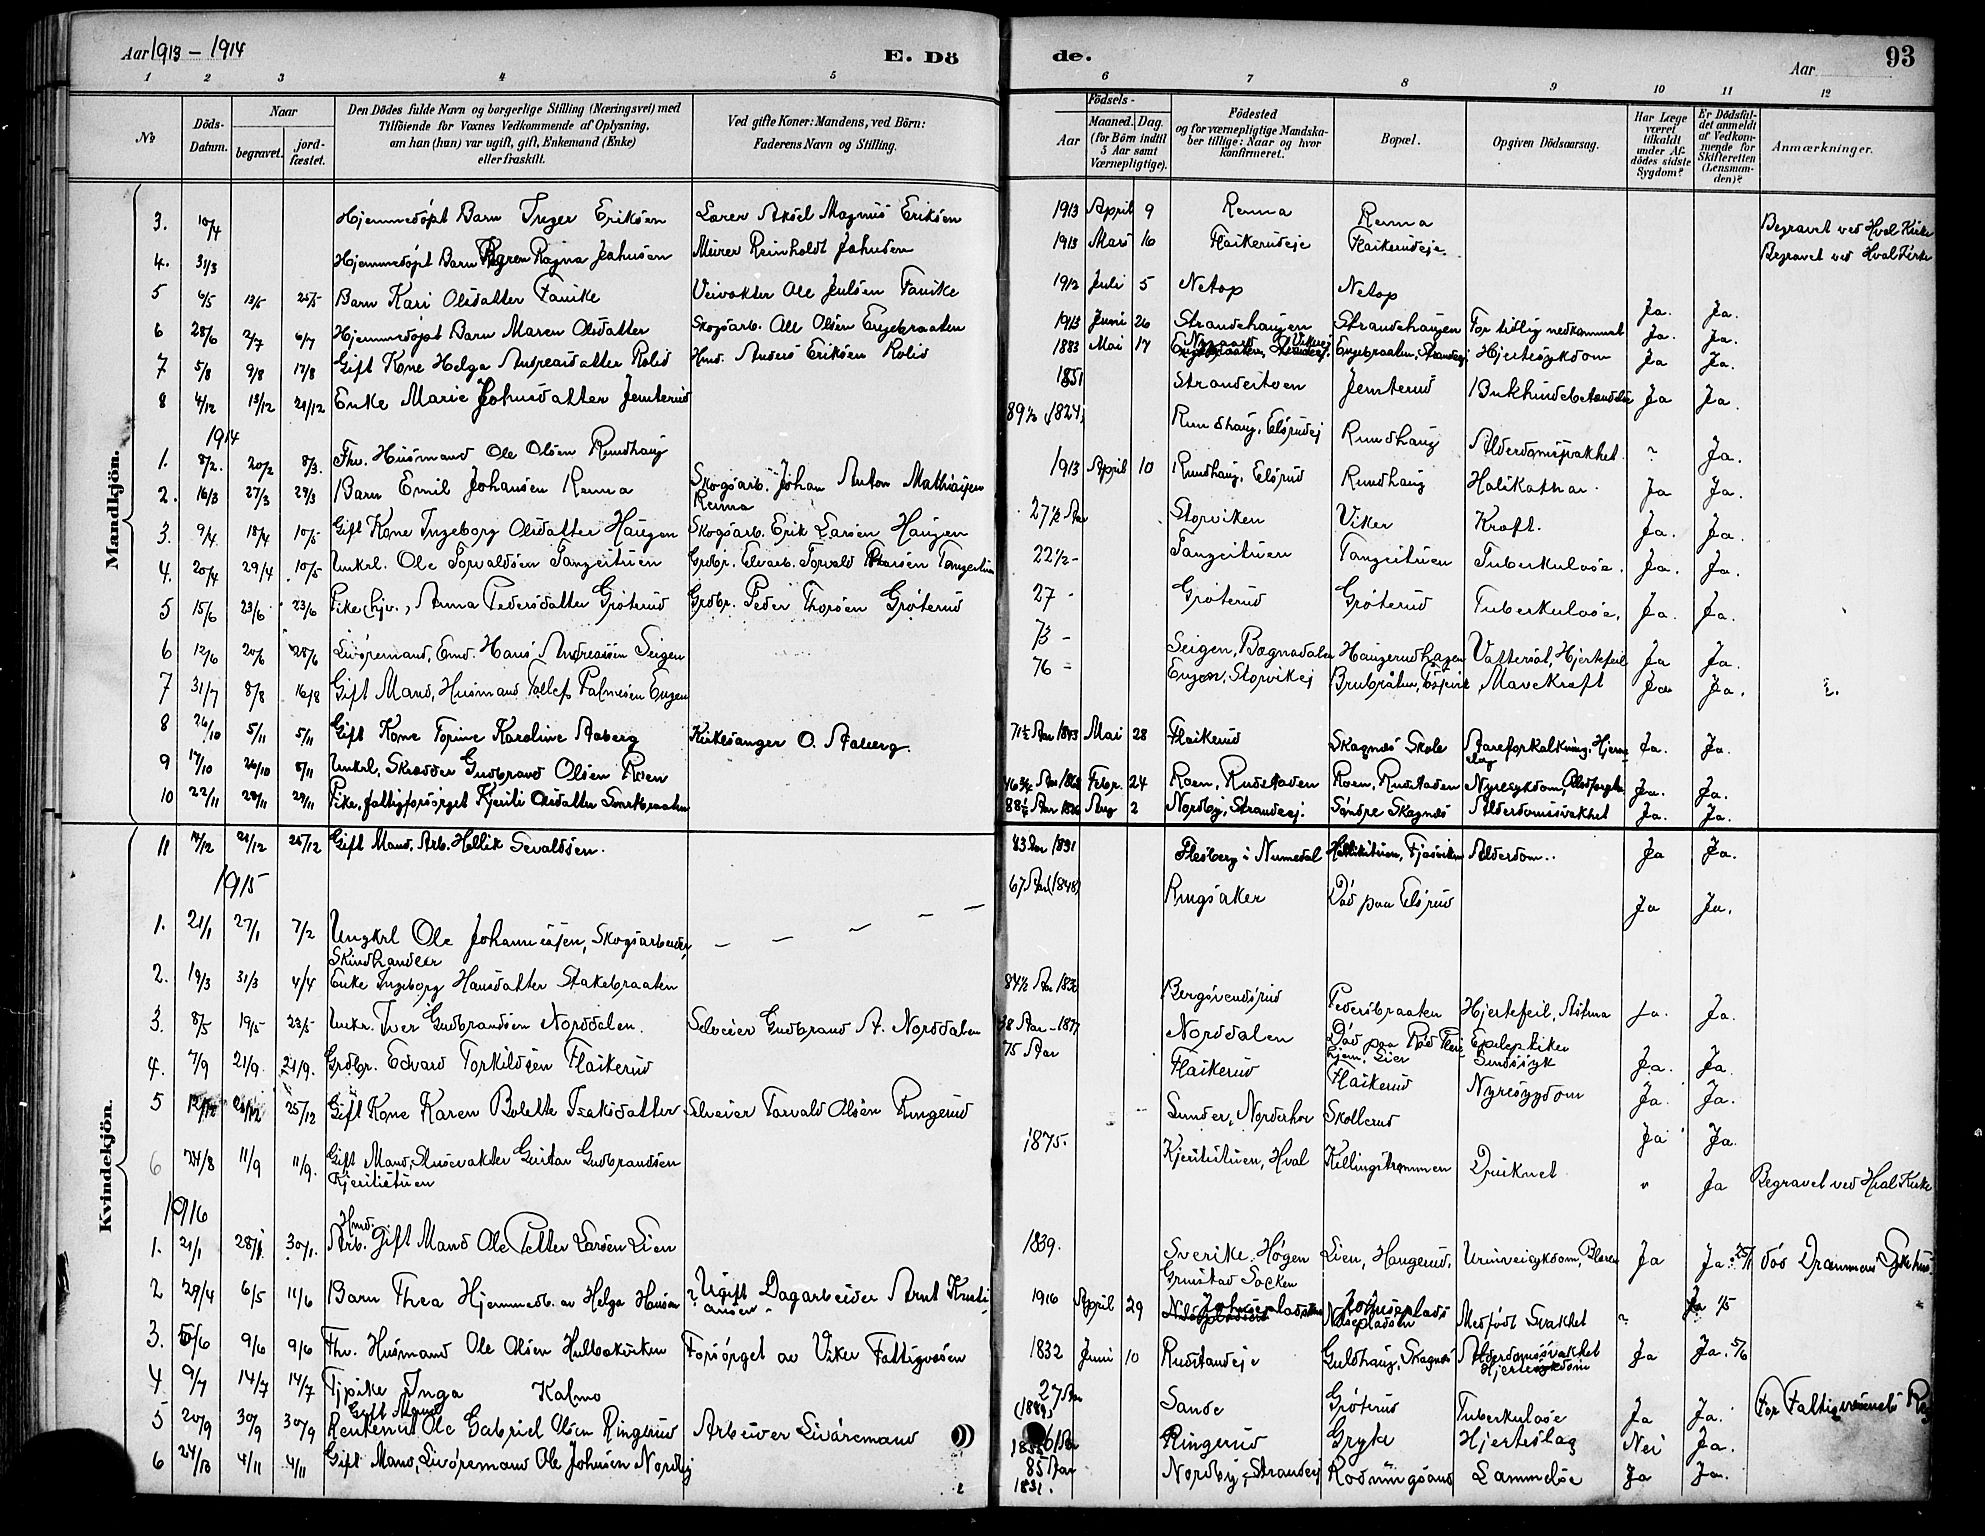 Aar 1913 – 1914
E. Dö
de.
Aar
93
1 2 3 4 5 6 7 8 9 10 11 12
No
Döds-Datum.
Naar
begravet.
jord-fæstet.
Den Dödes fulde Navn og borgerlige Stilling (Næringsvei) med
Tilföiende for Voxnes Vedkommende af Oplysning,
om han (hun) var ugift, gift, Enkemand (Enke)
eller fraskilt.
Ved gifte Koner: Mandens, ved Börn:
Faderens Navn og Stilling.
Födsels-
Aar
Maaned. Dag.
(for Börn indtil
5 Aar samt
Værnepligtige).
Födested
og for værnepligtige Mandska-
ber tillige: Naar og hvor
konfirmeret.
Bopæl.
Opgiven Dödsaarsag.
Har Læge
været
tilkaldt
under Af-
dödes sidste
Sygdom?
Er Dödsfal-
det anmeldt
af Vedkom-
mende for
Skifteretten
(Lensman-
den)?
Anmærkninger.
Mandkjön.
Kvindekjön.
3. 10/4 Hjemmedøpt Barn Inger Eriksen Aksel Magnus Eriksen 1913 April 9 Renna Renna Begravet ved Hval Kirke
4. 31/3 Hjemmedøpt Barn Ragna Johnsen Murer Reinholdt Johnsen 1913 Mars 16 Flaikerudeje Flaikerudeje Begravet ved Hval Kirke
5 6/5 13/5 25/5 Barn Kari Olsdatter Veivokter Ole Julsen 1912 Juli 5 Netop Netop Ja. Ja.
6 28/6 2/7 6/7 Hjemmedøpt Barn Maren Olsdatter Skogsarb. Ole Olsen Engebraaten 1913 Juni 26 Strandehaugen Strandehaugen For tidlig nedkommet Ja. Ja.
7 5/8 9/8 17/8 Gift Kone Helga Andreasdatter Rolid Hmd. Anders Eriksen Rolid 1883 Mai 17 Engebraaten, Strandeej Hjertesykdom Ja Ja.
8 4/12 13/12 21/12 Enke Marie Johnsdatter Jemterud 1851 Jemterud Ja Ja.
1914
1. 8/2. 20/2 8/3. Fhv. Husmand Ole Olsen Rundhaug 89½ (1824) Rundhaug, Elsrudej Rundhaug Alderdomssvakhet. " Ja.
2. 16/3 27/3 29/3 Barn Emil Johansen Renna Skogsarb. Johan Anton Mathiasen
Renna 1913 April 10 Rundhaug, Elsrud Rundhaug Ja Ja.
3. 9/4 18/4 10/5 Gift Kone Ingeborg Olsdatter Haugen Skogsarb. Erik Larsen Haugen 27½ Aar Storviken Viker Kræft. Ja. Ja.
4. 20/4 29/4 10/5 Unkrl. Ole Torvaldsen Tangeituen 22½ – Tangeituen Tangeituen Tuberkulose. Ja. Ja.
5 15/6 23/6 23/6 Pike, Anna Pedersdatter Grøterud Grdbr. Peder Thorsen Grøterud 27 - Grøterud Grøterud Tuberkulose. Ja. Ja.
6 12/6 20/6 28/6 Livøremand, Emd. Hans Andreassen Seigen 73 – Seigen, Hjertefeil Ja Ja.
7 31/7 8/8 16/8 Gift Mand, Husmand Tollef Palmesen Engen 76 = Engen, Storvikej MaveKræft Ja Ja.
8 26/10 5/11 5/11 Gift Kone Torine Karoline Aaberg Kirkesanger O. Aaberg. 71½ Aar 1843 Mai 28 Flaikerud Skagnæs Skole Aareforkalkning. Ja. Ja.
9 17/10 26/10 8/11 Unkrl, Skrædder Gudbrand Olsen Roen Aar 1868 Febr. 24 Roen, Rudstaden Roen, Rudstaden Nyresykdom, Ja. Ja.
10 22/11 29/11 29/11 Pike, fattigforsørget Kjersti Olsdatter 88½ Aar 1826 Aug 2 Nordby, Strandeej. Søndre Skagnæs Alderdomssvakhet Ja. Ja.
11 14/12 21/12 25/12 Gift Mand, Arb. Hellik Sevaldsen. 83 Aar 1831 Flesberg i Numedal Alderdom. Ja Ja.
1915
1. 21/1 27/1 7/2 Ungkrl Ole Johannessen, Skogsarbeider,
Skindhandler 67 Aar (1848) Ringsaker Død paa Elsrud Ja Ja.
2. 19/3 31/3 4/4 Enke Ingeborg Hansdatter Stakebraaten 84½ Aar Bergsvendsrud Pedersbraaten Hjertefeil, Astma Ja. Ja.
3. 8/5 19/5 23/5 Unkr. Iver Gudbrandsen Norddalen. Selveier Gudbrand A. Norddalen 38 Aar – 1877 Norddalen Død paa
hjem. Lier Epileptiker
Sindssyk Ja. Ja.
4. 7/9 21/9 21/9. Grdbr. Edvard Torkildsen Flaikerud 75 Aar Flaikerud Flaikerud Nyresygdom Ja. Ja.
5 25/12 Gift Kone Karen Bolette Isaksdatter Selveier Torvald Olsen Ringerud Sunder, Norderhov Skollerud Ja Ja.
6 24/8 11/9 11/9. Gift Mand, Slusevakter Gustav Gudbrandsen
Kjerstistuen 1875. Kjerstistuen, Hval Killingstrømmen Druknet " Ja Begravet ved Hval Kirke
1916
1. 21/1 28/1 30/1. Hmd.
Arb. Gift Mand Ole Petter Larsen Lien 1839. Sverike. Høgen
Grinstad Socken Lien, Haugerud, Urinveisykdom, Blæren Ja Ja: 25/1 død Drammens Sykehus
2 29/4 6/5 11/6 Barn Thea Hjemmedb. av Helga Hansen Ugift Dagarbeider Arnt Kristi
ansen 1916 April 29 Johnseplads Medfødt Svakhet Ja 1/5
3. 5/6 9/6 9/6 Fhv. Husmand Ole Olsen Forsørget av Viker Fattigvæsen 1832 Juni 10 Rudstandeje Guldhaug, Skagnæs Alderdomssvakhet
Hjertesykdom Ja Ja. 5/6
4 9/7 14/7 14/7 Tjpike Inga Kalmo 27 Aar
(1889) Sande Grøterud Tuberkulose Ja Ja. For Fattigvæsenets
5 20/9 30/9 30/9 Gift Mand
Rentenist Ole Gabriel Olsen Ringerud Arbeider Livøremand Ringerud Gryte Hjerteslag Nei Ja.
6 24/10 4/11 4/11 Gift Mand, Livøremand Ole Johnsen Nordby 85 Aar
1831. Nordby, Strandeej Rodningsand Lammelse Ja Ja.